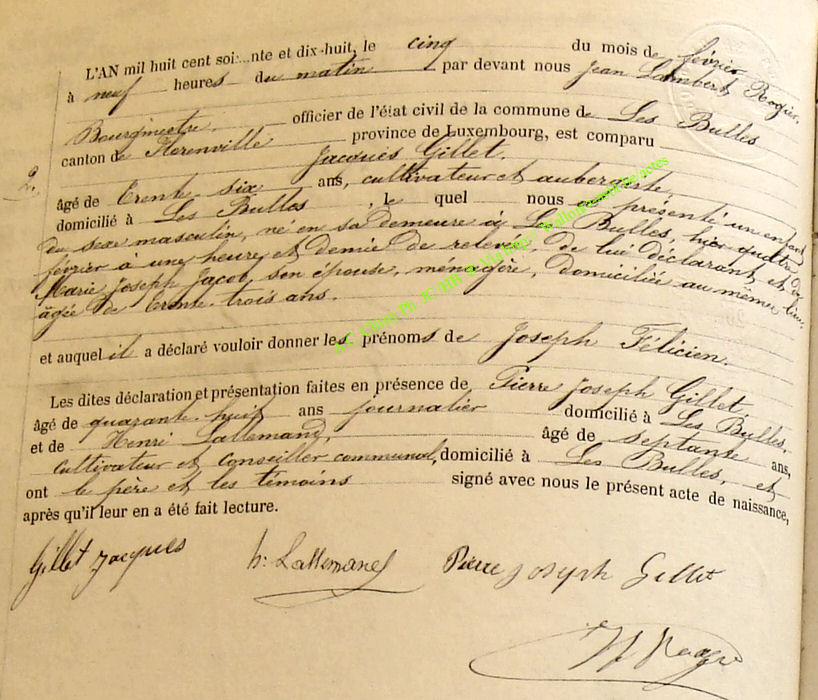 L'AN mil huit cent soi...nte et dix-huit, le cinq du mois de février
à neuf heures du matin par devant nous Jean Lambert Rogier,
Bourgmestre officier de l'état civil de la commune de Les Bulles
canton de Florenville province de Luxembourg, est comparu
2. Jacques Gillet,
âgé de trente six ans, cultivateur et aubergiste,
domicilié à Les Bulles, le quel nous a présenté un enfant
du sexe masculin, né en sa demeure à Les Bulles, hier quatre
février à une heure et demie de relevée, de lui déclarant et de
Marie Joseph Jacob, son épouse, ménagère, domiciliée au même lieu,
âgée de trente trois ans.
et auquel il a déclaré vouloir donner les prénoms de Joseph Félicien.
Les dites déclaration et présentation faites en présence de Pierre Joseph Gillet,
âgé de quarante huit ans journalier domicilié à Les Bulles,
et de Henri Lallemand, âgé de septante ans,
cultivateur et conseiller communal, domicilié à Les Bulles, et
ont le père et les témoins signé avec nous le présent acte de naissance,
après qu'il leur en a été fait lecture.
Gillet Jacques h: Lallemand Pierre Joseph Gillet